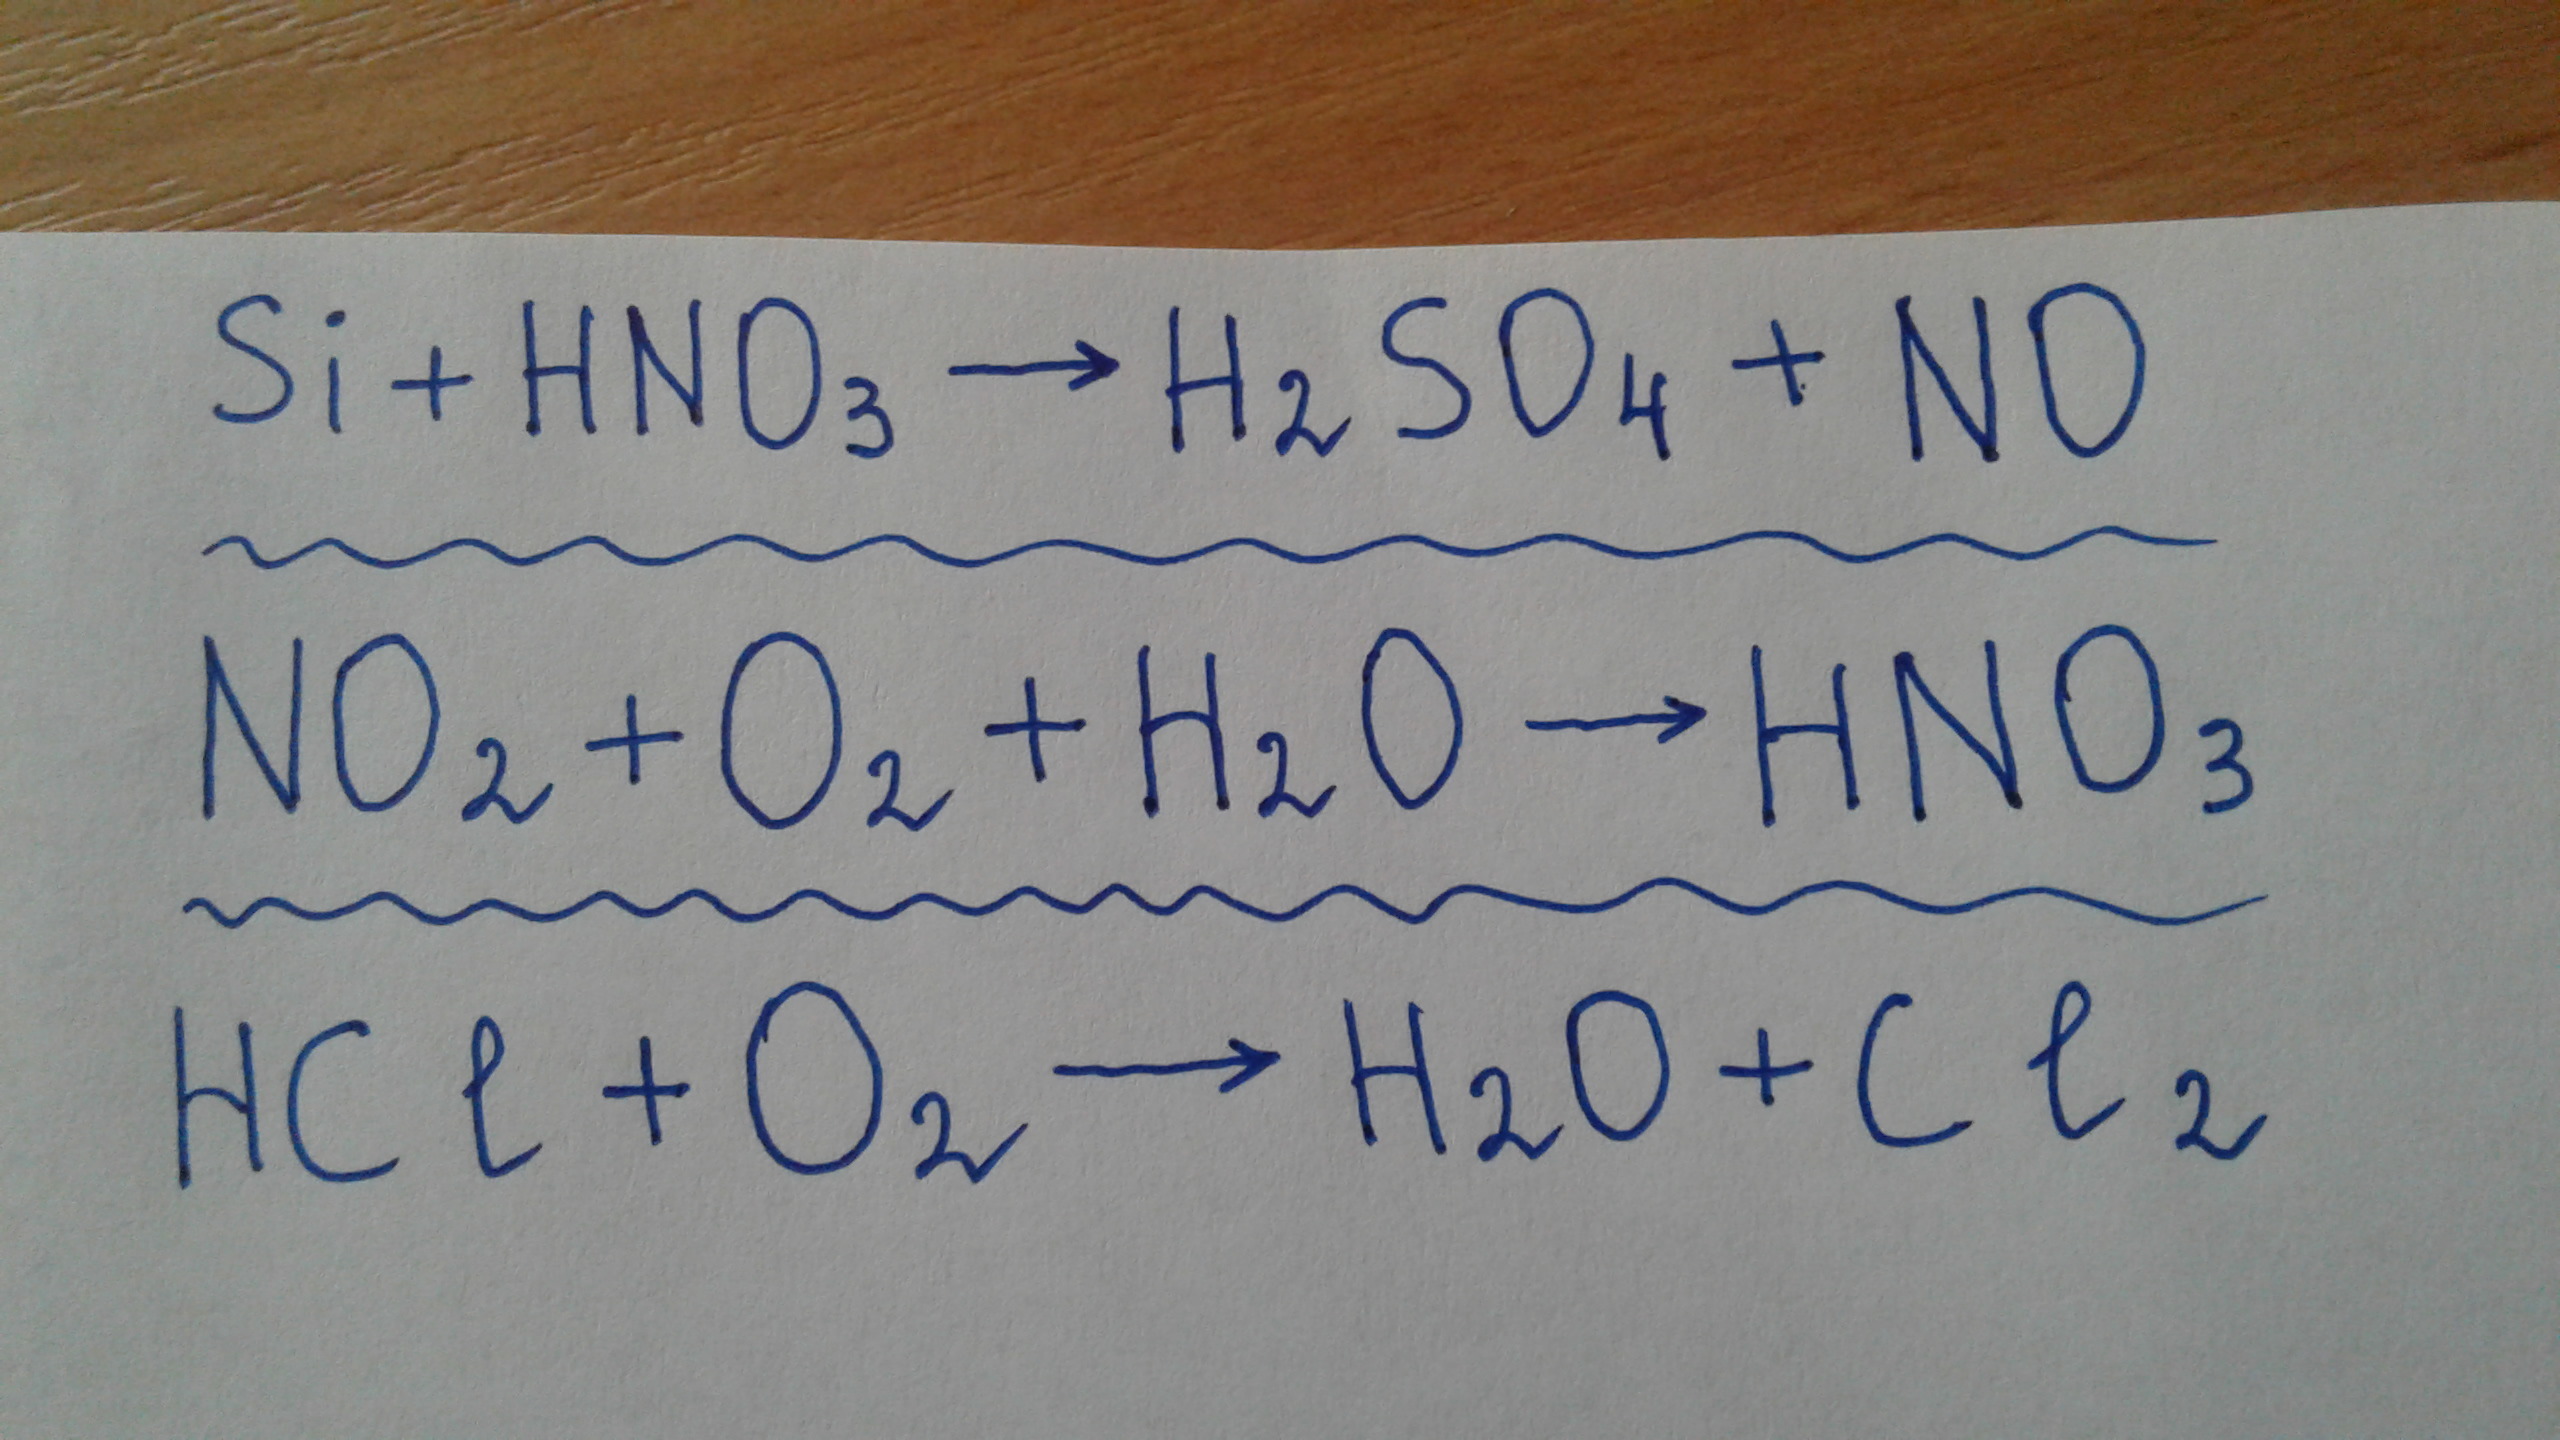 Si + HNO₃ → H₂SO₄ + NO
NO₂ + O₂ + H₂O → HNO₃
HCl + O₂ → H₂O + Cl₂